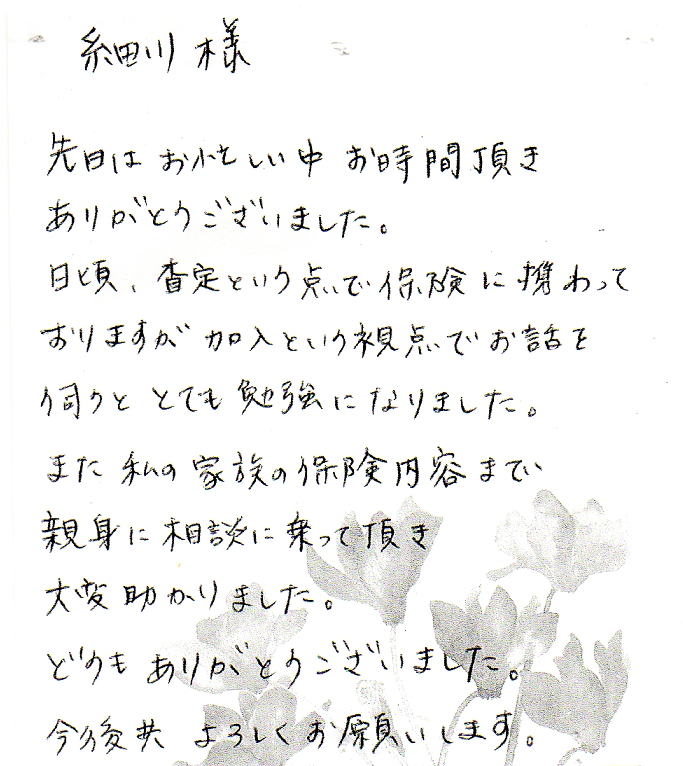 細川 様
先日は お忙しい中 お時間頂き
ありがとうございました。
日頃、査定という点で保険に携わって
おりますが 加入という視点でお話を
伺うと とても勉強になりました。
また 私の家族の保険内容まで
親身に相談に乗って頂き
大変助かりました。
どうも ありがとうございました。
今後共 よろしくお願いします。